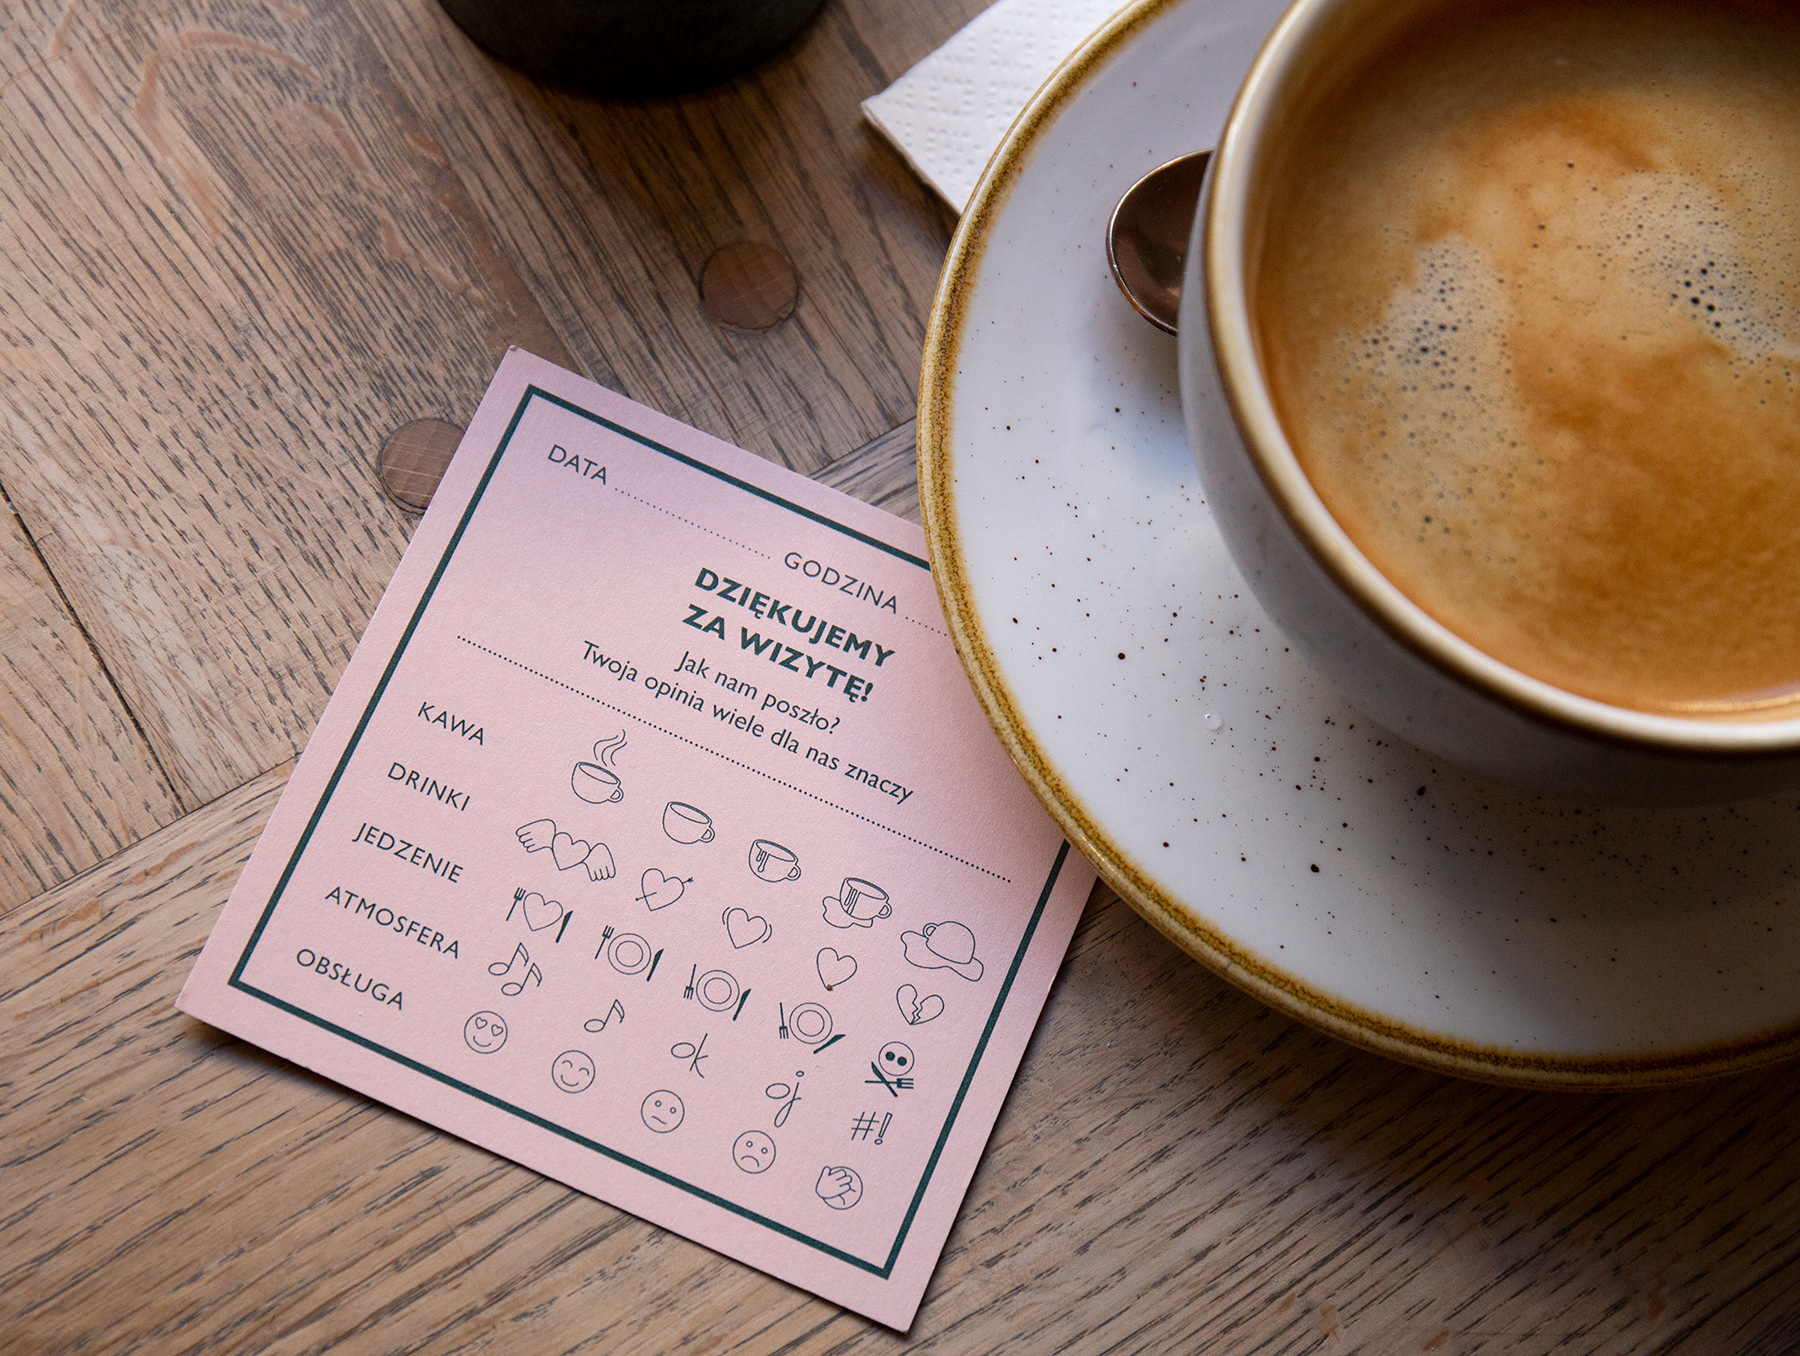 DATA .................... GODZINA .....
DZIĘKUJEMY
ZA WIZYTĘ!
Jak nam poszło?
Twoja opinia wiele dla nas znaczy
KAWA
DRINKI
JEDZENIE
ATMOSFERA ok oj #!
OBSŁUGA